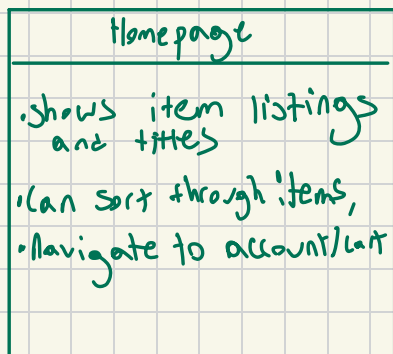 Homepage
•shows item listings
and titles
•Can sort through items,
•Navigate to account/cart